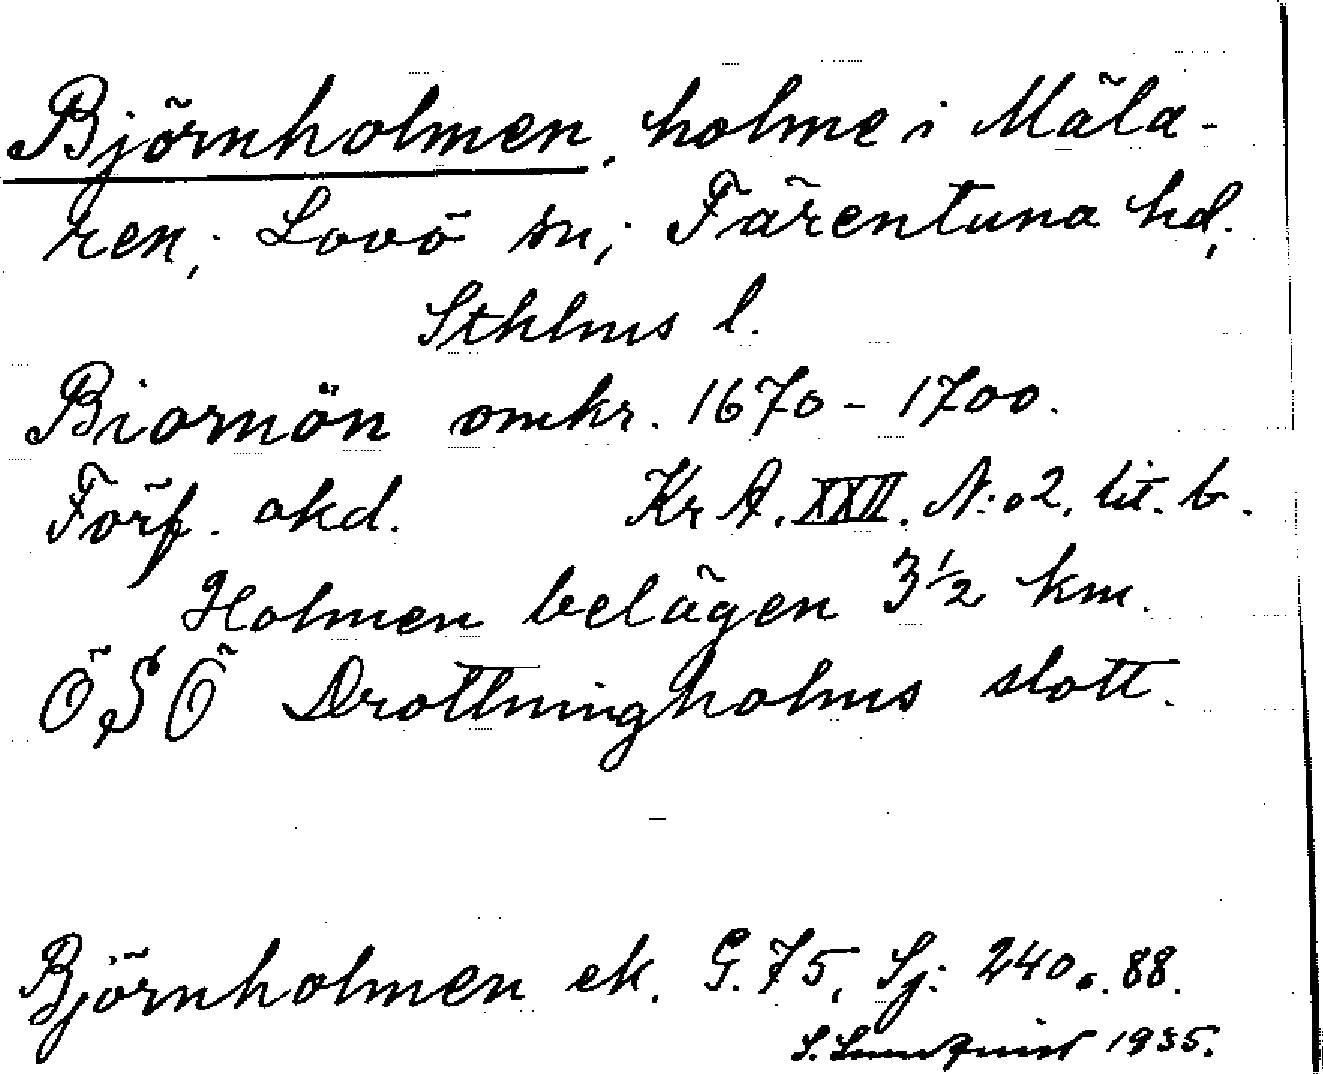 Björnholmen, holme i Mäla-
ren, Lovö sn, Färentuna hd,
Sthlms l.
Biornön omkr. 1670-1700.
Förf. okd. Kr A. XXII. N:o 2. lit. b.
Holmen belägen 3½ km.
ÖSÖ Drottningholms slott.
Björnholmen ek. G. 75, Sj: 240 o. 88.
S. Lundquist 1935.